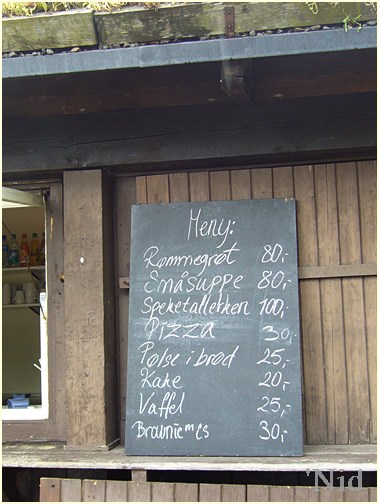 Meny:
Rømmegrøt 80,-
Småsuppe 80,-
Speketallerken 100,-
Pizza 30,-
Pølse i brød 25,-
Kake 20,-
Vaffel 25,-
Brownie m is 30,-
'Nid